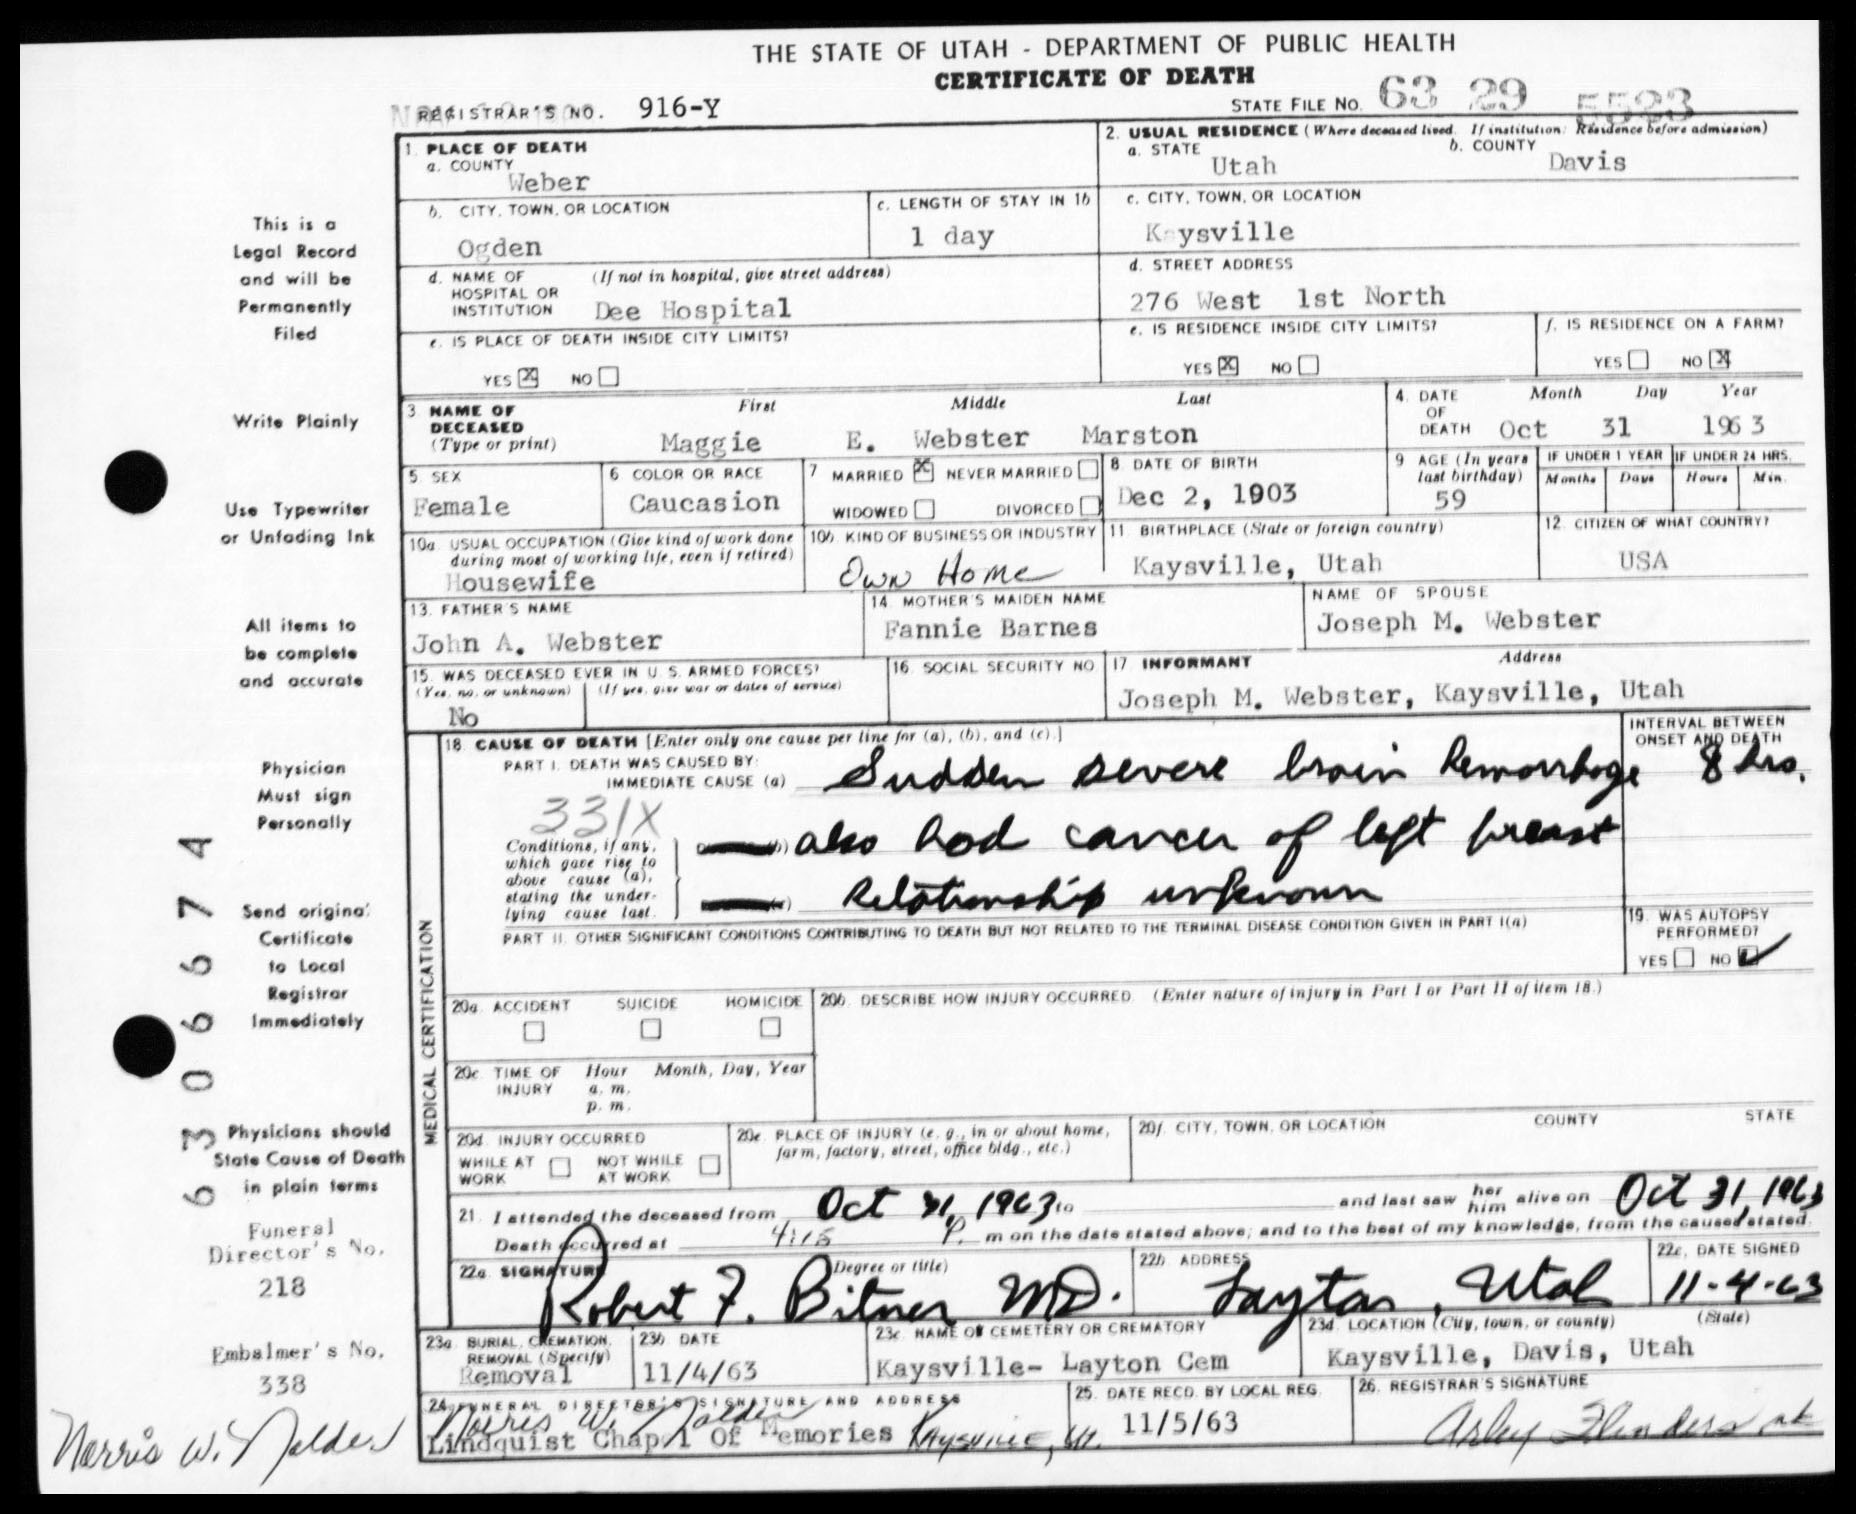 THE STATE OF UTAH - DEPARTMENT OF PUBLIC HEALTH
CERTIFICATE OF DEATH
REGISTRAR'S NO. 916-Y
STATE FILE NO. 63 29 5523
1. PLACE OF DEATH
a. COUNTY
Weber
2. USUAL RESIDENCE (Where deceased lived. If institution: Residence before admission)
a. STATE b. COUNTY
Utah Davis
b. CITY, TOWN, OR LOCATION
Ogden
c. LENGTH OF STAY IN 1b
1 day
c. CITY, TOWN, OR LOCATION
Kaysville
d. NAME OF HOSPITAL OR INSTITUTION (If not in hospital, give street address)
Dee Hospital
d. STREET ADDRESS
276 West 1st North
e. IS PLACE OF DEATH INSIDE CITY LIMITS?
YES X NO
e. IS RESIDENCE INSIDE CITY LIMITS?
YES X NO
f. IS RESIDENCE ON A FARM?
YES NO X
3. NAME OF DECEASED (Type or print)
First Middle Last
Maggie E. Webster Marston
4. DATE OF DEATH
Month Day Year
Oct 31 1963
5. SEX
Female
6 COLOR OR RACE
Caucasion
7 MARRIED X NEVER MARRIED
WIDOWED DIVORCED
8. DATE OF BIRTH
Dec 2, 1903
9 AGE (In years last birthday)
59
IF UNDER 1 YEAR IF UNDER 24 HRS.
Months Days Hours Min.
10a. USUAL OCCUPATION (Give kind of work done during most of working life, even if retired)
Housewife
10b. KIND OF BUSINESS OR INDUSTRY
Own Home
11. BIRTHPLACE (State or foreign country)
Kaysville, Utah
12. CITIZEN OF WHAT COUNTRY?
USA
13. FATHER'S NAME
John A. Webster
14. MOTHER'S MAIDEN NAME
Fannie Barnes
NAME OF SPOUSE
Joseph M. Webster
15. WAS DECEASED EVER IN U. S. ARMED FORCES?
(Yes, no, or unknown) (If yes, give war or dates of service)
No
16. SOCIAL SECURITY NO
17 INFORMANT Address
Joseph M. Webster, Kaysville, Utah
MEDICAL CERTIFICATION
18. CAUSE OF DEATH [Enter only one cause per line for (a), (b), and (c).]
INTERVAL BETWEEN ONSET AND DEATH
PART I. DEATH WAS CAUSED BY:
IMMEDIATE CAUSE (a) Sudden severe brain hemorrhage 8 hrs.
331X
Conditions, if any, which gave rise to above cause (a), stating the underlying cause last.
(b) also had cancer of left breast
(c) relationship unknown
PART II. OTHER SIGNIFICANT CONDITIONS CONTRIBUTING TO DEATH BUT NOT RELATED TO THE TERMINAL DISEASE CONDITION GIVEN IN PART I(a)
19. WAS AUTOPSY PERFORMED?
YES NO ✓
20a. ACCIDENT SUICIDE HOMICIDE
20b. DESCRIBE HOW INJURY OCCURRED. (Enter nature of injury in Part I or Part II of item 18.)
20c. TIME OF INJURY Hour Month, Day, Year
a. m.
p. m.
20d. INJURY OCCURRED
WHILE AT WORK NOT WHILE AT WORK
20e. PLACE OF INJURY (e. g., in or about home, farm, factory, street, office bldg., etc.)
20f. CITY, TOWN, OR LOCATION COUNTY STATE
21. I attended the deceased from Oct 31, 1963 to and last saw her him alive on Oct 31, 1963
Death occurred at 4:15 P. m on the date stated above; and to the best of my knowledge, from the causes stated.
22a. SIGNATURE (Degree or title)
Robert F. Bitner MD.
22b. ADDRESS
Layton, Utah
22c. DATE SIGNED
11-4-63
23a. BURIAL, CREMATION, REMOVAL (Specify)
Removal
23b. DATE
11/4/63
23c. NAME OF CEMETERY OR CREMATORY
Kaysville- Layton Cem
23d. LOCATION (City, town, or county) (State)
Kaysville, Davis, Utah
24. FUNERAL DIRECTOR'S SIGNATURE AND ADDRESS
Norris W. Nalder
Lindquist Chapel Of Memories Kaysville, Ut.
25. DATE RECD. BY LOCAL REG.
11/5/63
26. REGISTRAR'S SIGNATURE
Arley Flinders
This is a
Legal Record
and will be
Permanently
Filed
Write Plainly
Use Typewriter
or Unfading Ink
All items to
be complete
and accurate
Physician
Must sign
Personally
Send original
Certificate
to Local
Registrar
Immediately
Physicians should
State Cause of Death
in plain terms
Funeral
Director's No.
218
Embalmer's No.
338
Norris W. Nalder
6306674